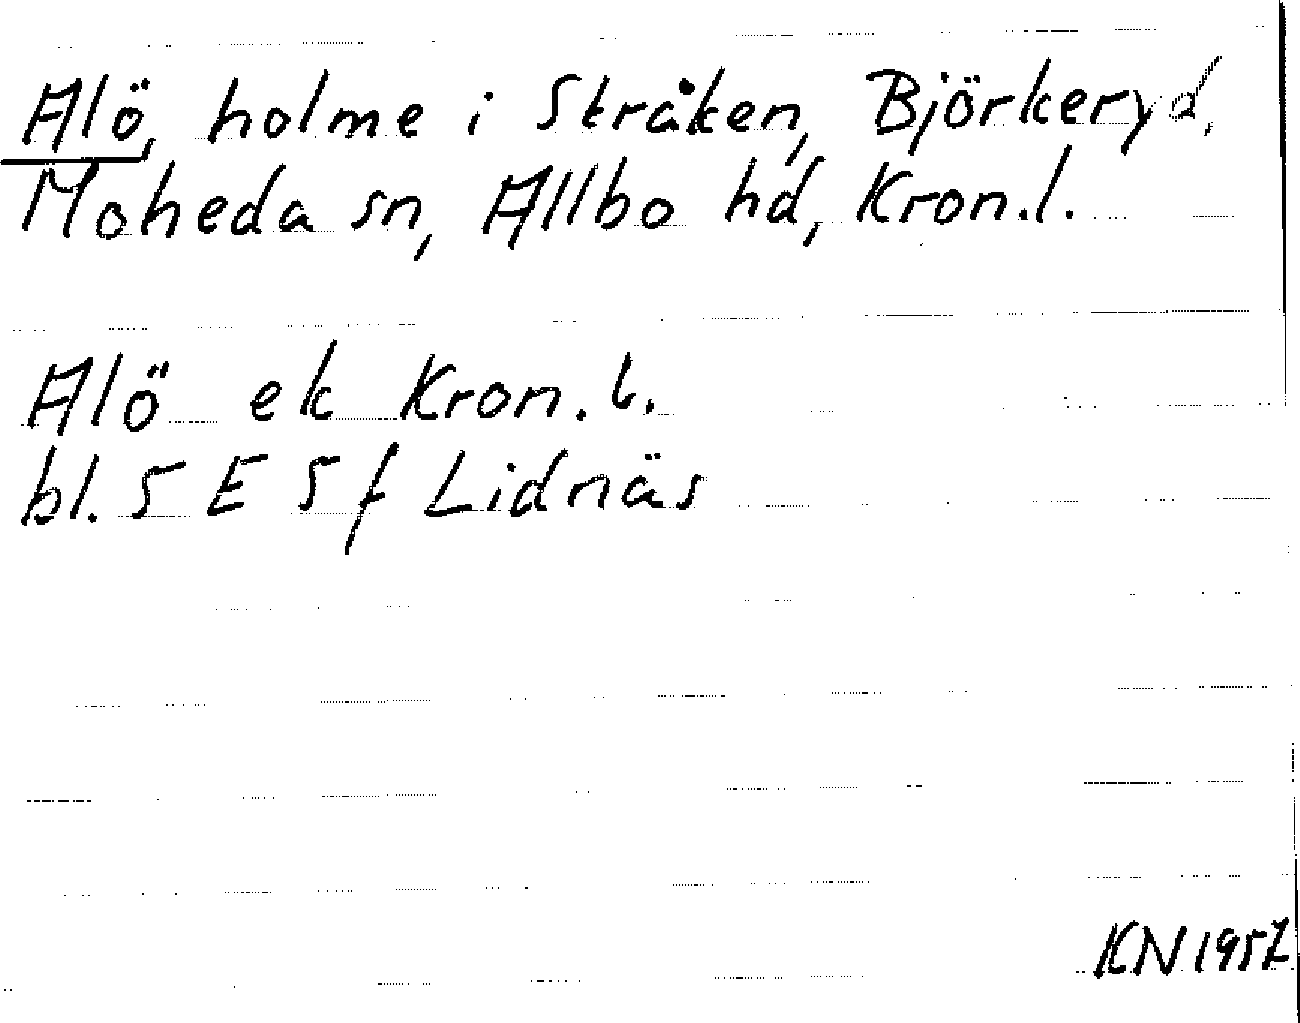 Alö, holme i Stråken, Björkeryd,
Moheda sn, Allbo hd, Kron.l.
Alö ek Kron.l.
bl. 5 E 5 f Lidnäs
KN 1957